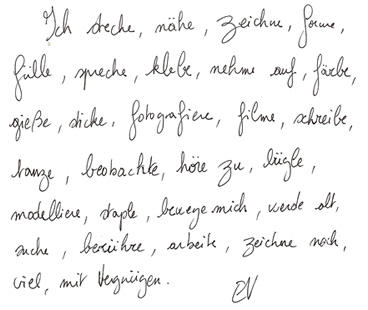 Ich steche, nähe, zeichne, forme,
fülle, spreche, klebe, nehme auf, färbe,
gieße, sticke, fotografiere, filme, schreibe,
tanze, beobachte, höre zu, bügle,
modelliere, staple, bewege mich, werde alt,
suche, berühre, arbeite, zeichne nach,
viel, mit Vergnügen.